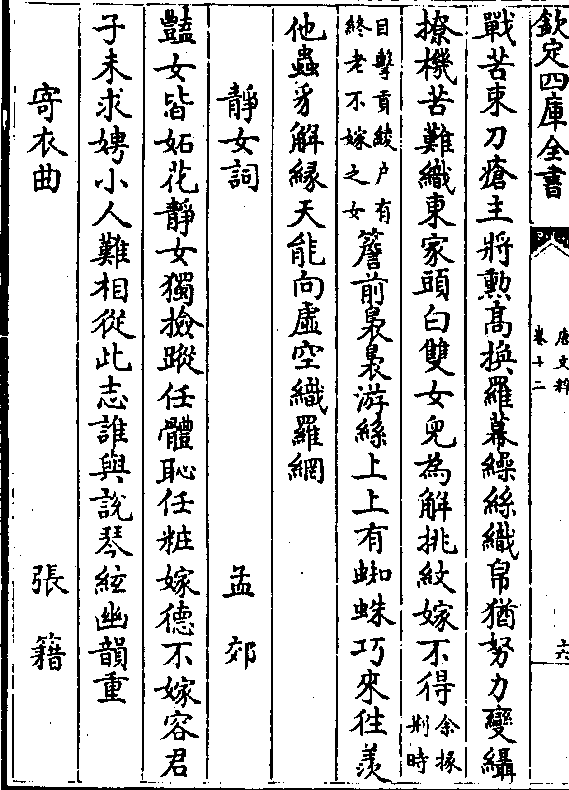 欽定四庫全書
唐文粹
卷十二
六
戰苦束刀瘡主將勲髙換羅幕繰絲織帛猶努力變䌰
撩機苦難織東家頭白雙女兒為解挑紋嫁不得余掾荆時
目擊貢綾户有終老不嫁之女簷前裊裊游絲上上有蜘蛛巧來往羨
他蟲豸解縁天能向虛空織羅網
靜女詞 孟郊
豔女皆妬花靜女獨撿蹤任體恥任粧嫁德不嫁容君
子未求娉小人難相從此志誰與說琴絃幽韻重
寄衣曲 張籍